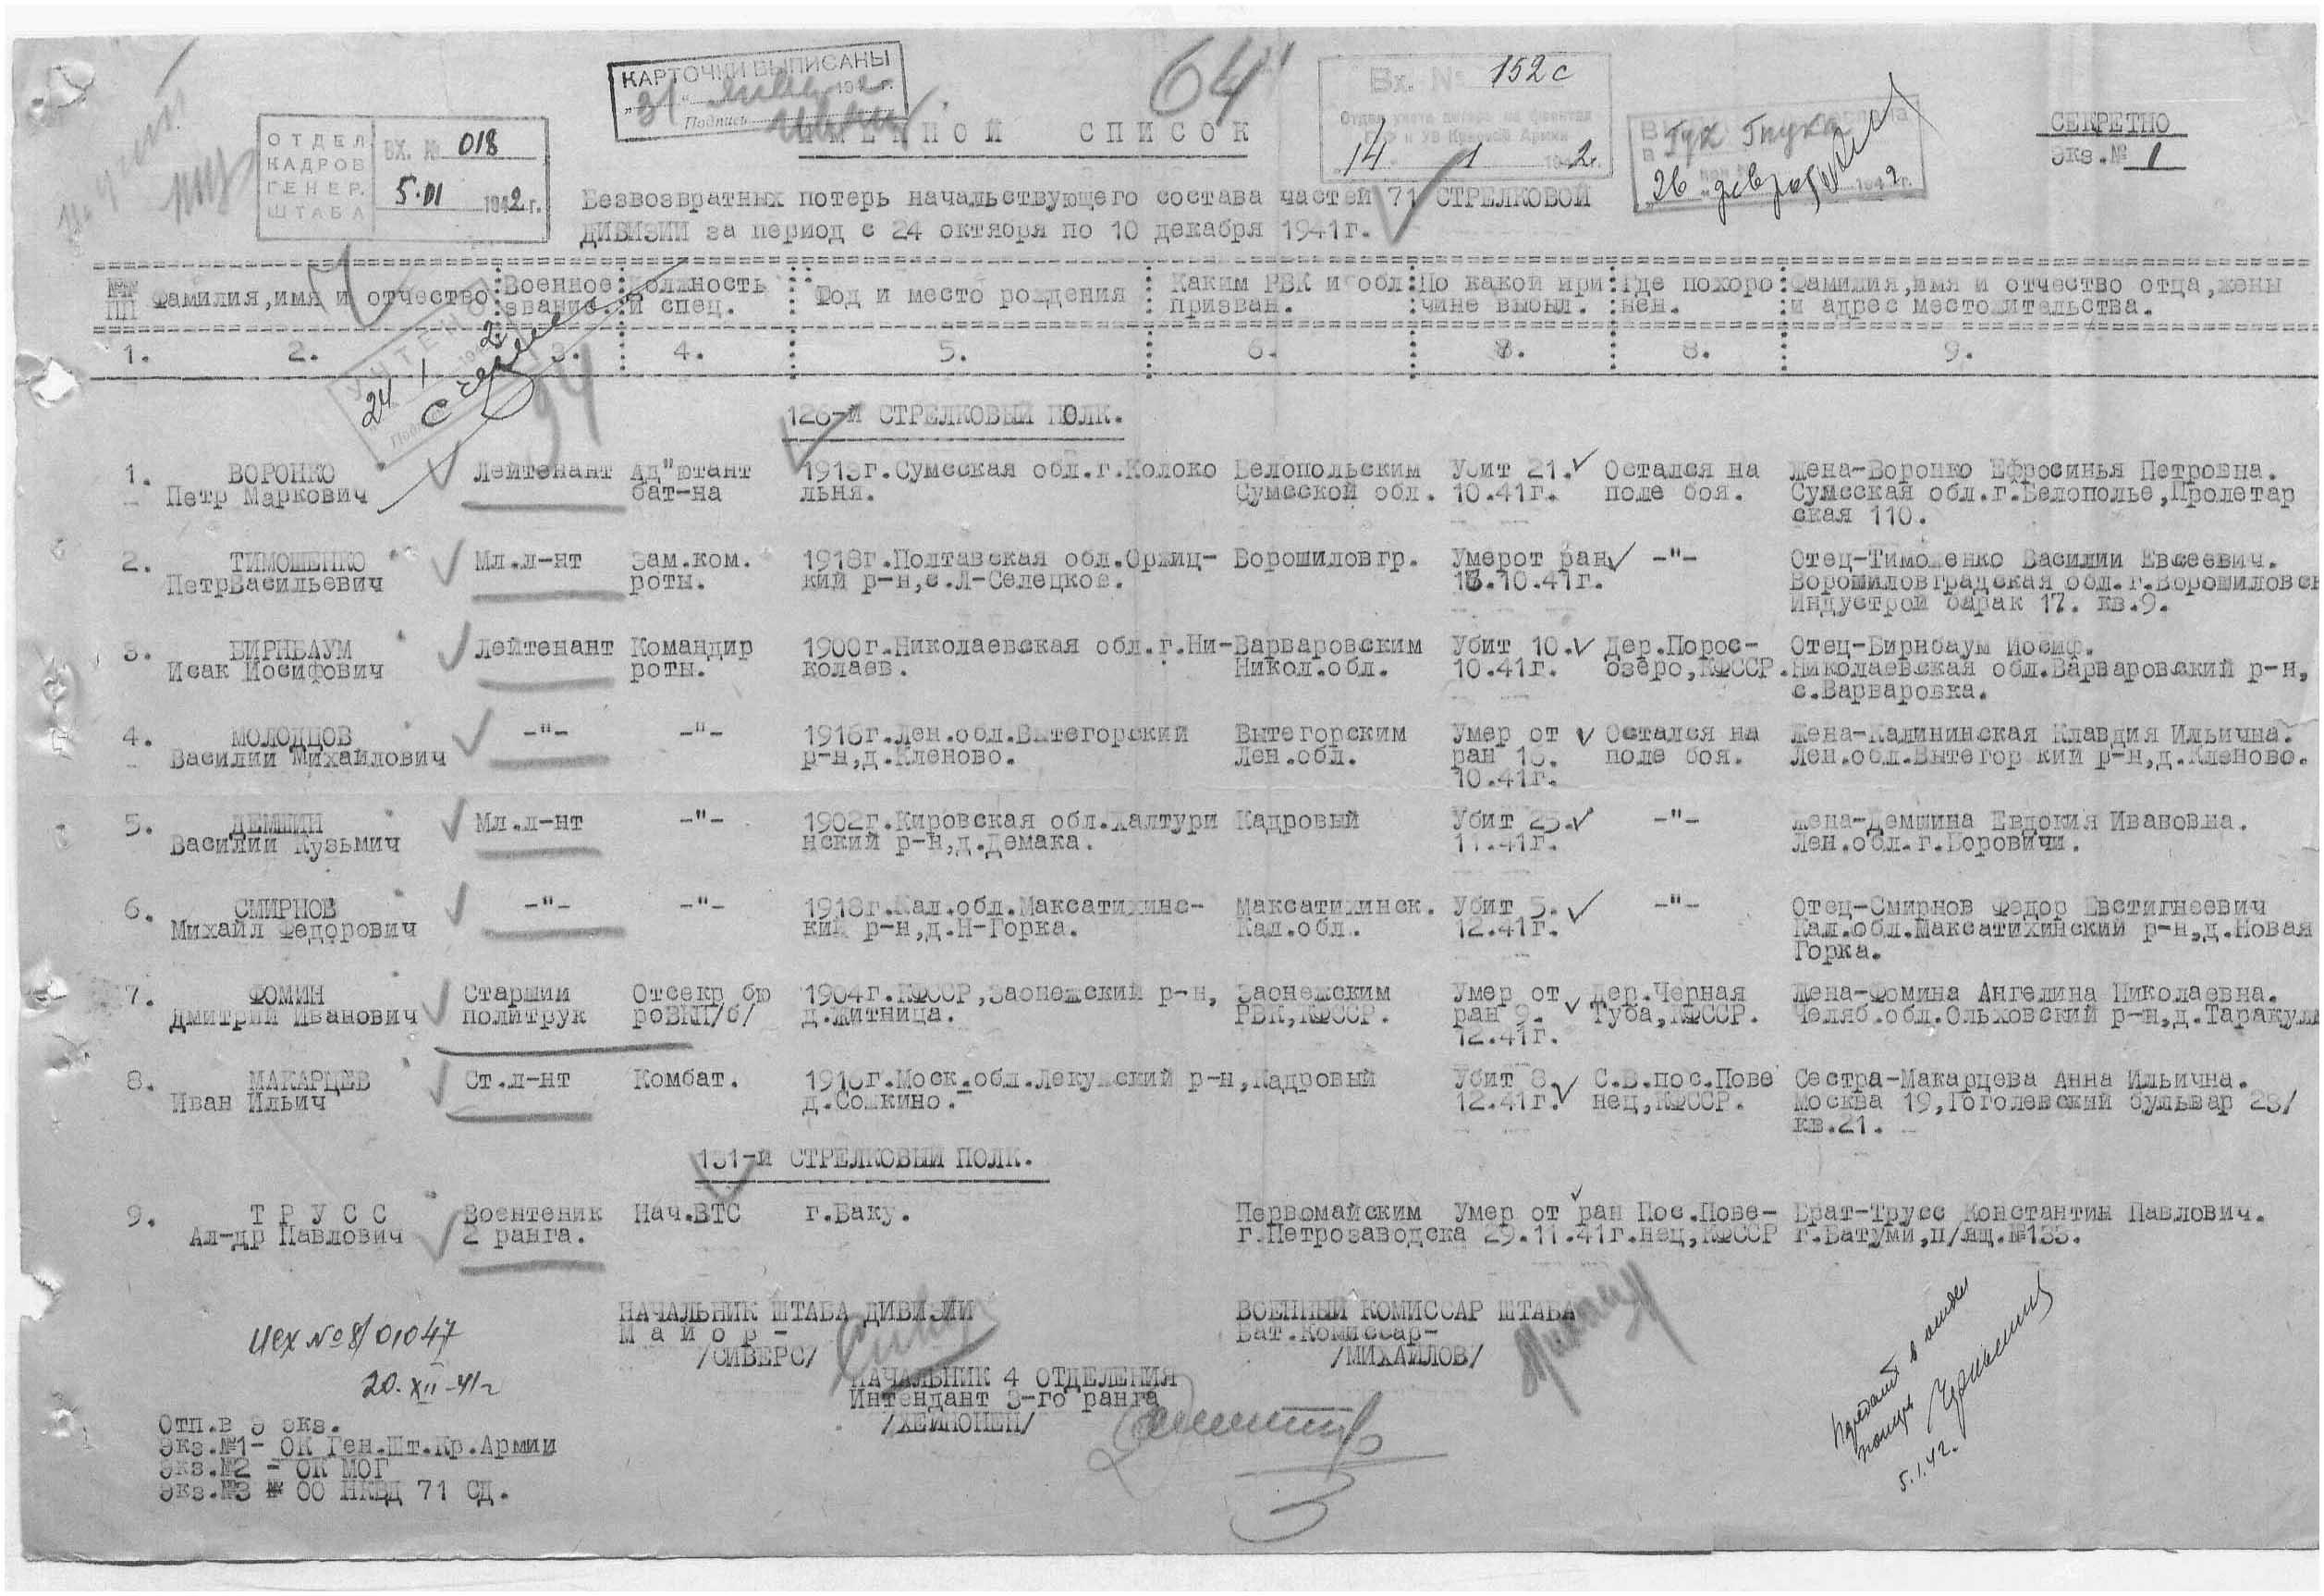 КАРТОЧКИ ВЫПИСАНЫ
"31" 194 г.
Подпись
64
Вх. № 152с
14 1 1942г.
ОТДЕЛ
КАДРОВ
ГЕНЕР.
ШТАБА
ВХ. № 018
5.01 1942г.
26 1942г.
СЕКРЕТНО
Экз.№ 1
ИМЕННОЙ СПИСОК
Безвозвратных потерь начальствующего состава частей 71 СТРЕЛКОВОЙ
ДИВИЗИИ за период с 24 октября по 10 декабря 1941г.
№№ ПП
Фамилия,имя и отчество
Военное звание.
Должность и спец.
Год и место рождения
Каким РВК и обл призван.
По какой при чине выбыл.
Где похоро нен.
Фамилия,имя и отчество отца,жены и адрес местожительства.
1. 2. 3. 4. 5. 6. 7. 8. 9.
УЧТЕНО
24 1 2
94
126-й СТРЕЛКОВЫЙ ПОЛК.
1. ВОРОНКО Лейтенант Ад"ютант 1913г.Сумсская обл.г.Колоко Белопольским Убит 21. Остался на Жена-Воронко Ефросинья Петровна.
Петр Маркович бат-на льня. Сумсской обл. 10.41г. поле боя. Сумсская обл.г.Белополье,Пролетар
ская 110.
2. ТИМОШЕНКО Мл.л-нт Зам.ком. 1918г.Полтавская обл.Оржиц- Ворошиловгр. Умерот ран -"- Отец-Тимошенко Василии Евсеевич.
ПетрВасильевич роты. кий р-н,с.Л-Селецкое. 10.41г. Ворошиловградская обл.г.Ворошиловск
Индустрой барак 17. кв.9.
3. БИРНБАУМ Лейтенант Командир 1900г.Николаевская обл.г.Ни- Варваровским Убит 10. Дер.Порос- Отец-Бирнбаум Иосиф.
Исак Иосифович роты. колаев. Никол.обл. 10.41г. озеро,КФССР. Николаевская обл.Варваровский р-н,
с.Варваровка.
4. МОЛОДЦОВ -"- -"- 1916г.Лен.обл.Вытегорский Вытегорским Умер от Остался на Жена-Калининская Клавдия Ильична.
Василий Михайлович р-н,д.Кленово. Лен.обл. ран поле боя. Лен.обл.Вытегор кий р-н,д.Кленово.
10.41г.
5. ДЕМШИН Мл.л-нт -"- 1902г.Кировская обл.Халтури Кадровый Убит 25. -"- Жена-Демшина Евдокия Ивановна.
Василий Кузьмич нский р-н,д.Демака. 11.41г. Лен.обл.г.Боровичи.
6. СМИРНОВ -"- -"- 1918г.Кал.обл.Максатихинс- Максатихинск. Убит 5. -"- Отец-Смирнов Федор Евстигнеевич
Михайл Федорович кий р-н,д.Н-Горка. Кал.обл. 12.41г. Кал.обл.Максатихинский р-н,д.Новая
Горка.
7. ФОМИН Старшии Отсекр бю 1904г.КФССР,Заонежский р-н, Заонежским Умер от Дер.Черная Жена-Фомина Ангелина Николаевна.
Дмитрий Иванович политрук роВКП/б/ д.Житница. РВК,КФССР. ран 9. Губа,КФССР. Челяб.обл.Ольховский р-н,д.Таракул
12.41г.
8. МАКАРЦЕВ Ст.л-нт Комбат. 1916г.Моск.обл.Лекумский р-н, Кадровый Убит 8. С.В.пос.Пове Сестра-Макарцева Анна Ильична.
Иван Ильич д.Сошкино. 12.41г. нец,КФССР. Москва 19,Гоголевский бульвар 23/
кв.21.
131-й СТРЕЛКОВЫЙ ПОЛК.
9. ТРУСС Воентеник Нач.ВТС г.Баку. Первомайским Умер от ран Пос.Пове- Брат-Трусс Константин Павлович.
Ал-др Павлович 2 ранга. г.Петрозаводска 29.11.41г. нец,КФССР г.Батуми,п/ящ.№133.
НАЧАЛЬНИК ШТАБА ДИВИЗИИ
Майор-
/СИВЕРС/
ВОЕННЫЙ КОМИССАР ШТАБА
Бат.Комиссар-
/МИХАЙЛОВ/
НАЧАЛЬНИК 4 ОТДЕЛЕНИЯ
Интендант 3-го ранга
/ХЕЙНОНЕН/
Исх №8/01047
20.XII-41г
Отп.в 3 экз.
Экз.№1- ОК Ген.Шт.Кр.Армии
Экз.№2 - ОК МОГ
Экз.№3 - ОО НКВД 71 СД.
3
5.1.42.